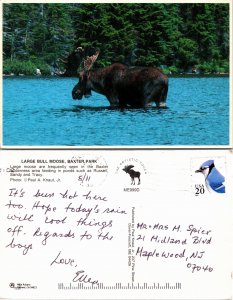 LARGE BULL MOOSE, BAXTER PARK
Large moose are frequently seen in the Baxter
Wilderness area feeding in ponds such as Russell,
Sandy and Tracy.
Photo: © Paul A. Knaut, Jr.
5/11
USA
20
It's been hot here
too. Hope today's rain
will cool things
off. Regards to the
boys
Love,
Ellen
Mr + Mrs H. Spier
21 Midland Blvd
Maplewood, NJ
07040